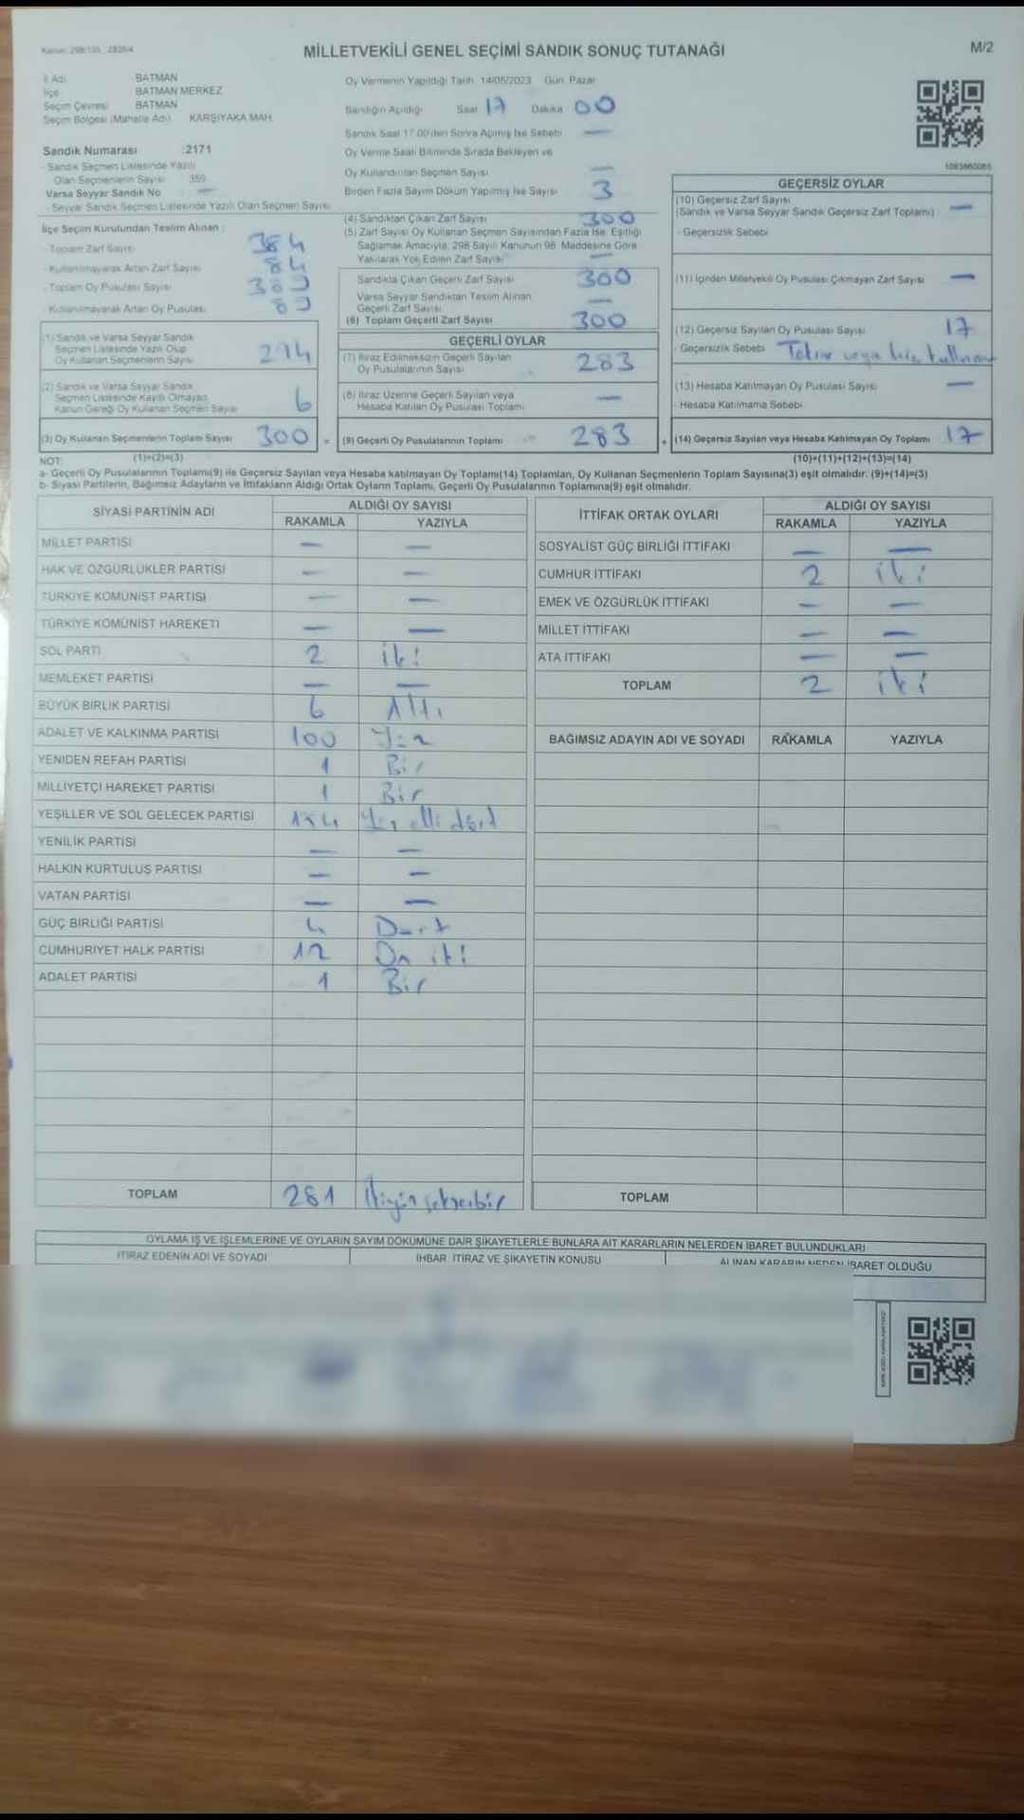 MİLLETVEKİLİ GENEL SEÇİMİ SANDIK SONUÇ TUTANAĞI
M/2
İl Adı BATMAN
İlçe BATMAN MERKEZ
Seçim Çevresi BATMAN
Seçim Bölgesi (Mahalle Adı) KARŞIYAKA MAH.
Sandık Numarası :2171
- Sandık Seçmen Listesinde Yazılı
Olan Seçmenlerin Sayısı 359
Varsa Seyyar Sandık No —
- Seyyar Sandık Seçmen Listesinde Yazılı Olan Seçmen Sayısı
Oy Vermenin Yapıldığı Tarih 14/05/2023 Gün Pazar
Sandığın Açıldığı Saat 17 Dakika 00
Sandık Saat 17.00'den Sonra Açılmış İse Sebebi —
Oy Verme Saati Bitiminde Sırada Bekleyen ve
Oy Kullandırılan Seçmen Sayısı —
Birden Fazla Sayım Döküm Yapılmış İse Sayısı 3
İlçe Seçim Kurulundan Teslim Alınan :
- Toplam Zarf Sayısı 384
- Kullanılmayarak Artan Zarf Sayısı 84
- Toplam Oy Pusulası Sayısı 383
- Kullanılmayarak Artan Oy Pusulası 83
(1) Sandık ve Varsa Seyyar Sandık
Seçmen Listesinde Yazılı Olup
Oy Kullanan Seçmenlerin Sayısı 294
(2) Sandık ve Varsa Seyyar Sandık
Seçmen Listesinde Kayıtlı Olmayıp
Kanun Gereği Oy Kullanan Seçmen Sayısı 6
(3) Oy Kullanan Seçmenlerin Toplam Sayısı 300 =
(1)+(2)=(3)
(4) Sandıktan Çıkan Zarf Sayısı 300
(5) Zarf Sayısı Oy Kullanan Seçmen Sayısından Fazla İse, Eşitliği
Sağlamak Amacıyla, 298 Sayılı Kanunun 98. Maddesine Göre
Yakılarak Yok Edilen Zarf Sayısı —
Sandıkta Çıkan Geçerli Zarf Sayısı 300
Varsa Seyyar Sandıktan Teslim Alınan
Geçerli Zarf Sayısı —
(6) Toplam Geçerli Zarf Sayısı 300
GEÇERLİ OYLAR
(7) İtiraz Edilmeksizin Geçerli Sayılan
Oy Pusulalarının Sayısı 283
(8) İtiraz Üzerine Geçerli Sayılan veya
Hesaba Katılan Oy Pusulası Toplamı —
(9) Geçerli Oy Pusulalarının Toplamı 283 +
GEÇERSİZ OYLAR
(10) Geçersiz Zarf Sayısı
(Sandık ve Varsa Seyyar Sandık Geçersiz Zarf Toplamı) —
- Geçersizlik Sebebi
(11) İçinden Milletvekili Oy Pusulası Çıkmayan Zarf Sayısı —
(12) Geçersiz Sayılan Oy Pusulası Sayısı 17
- Geçersizlik Sebebi Tekrar veya hiç
(13) Hesaba Katılmayan Oy Pusulası Sayısı —
- Hesaba Katılmama Sebebi
(14) Geçersiz Sayılan veya Hesaba Katılmayan Oy Toplamı 17
(10)+(11)+(12)+(13)=(14)
NOT:
a- Geçerli Oy Pusulalarının Toplamı(9) ile Geçersiz Sayılan veya Hesaba katılmayan Oy Toplamı(14) Toplamları, Oy Kullanan Seçmenlerin Toplam Sayısına(3) eşit olmalıdır. (9)+(14)=(3)
b- Siyasi Partilerin, Bağımsız Adayların ve İttifakların Aldığı Ortak Oyların Toplamı, Geçerli Oy Pusulalarının Toplamına(9) eşit olmalıdır.
SİYASİ PARTİNİN ADI ALDIĞI OY SAYISI
RAKAMLA YAZIYLA
MİLLET PARTİSİ — —
HAK VE ÖZGÜRLÜKLER PARTİSİ — —
TÜRKİYE KOMÜNİST PARTİSİ — —
TÜRKİYE KOMÜNİST HAREKETİ — —
SOL PARTİ 2 iki
MEMLEKET PARTİSİ — —
BÜYÜK BİRLİK PARTİSİ 6 Altı
ADALET VE KALKINMA PARTİSİ 100 Yüz
YENİDEN REFAH PARTİSİ 1 Bir
MİLLİYETÇİ HAREKET PARTİSİ 1 Bir
YEŞİLLER VE SOL GELECEK PARTİSİ 154 Yüz elli dört
YENİLİK PARTİSİ — —
HALKIN KURTULUŞ PARTİSİ — —
VATAN PARTİSİ — —
GÜÇ BİRLİĞİ PARTİSİ 4 Dört
CUMHURİYET HALK PARTİSİ 12 On iki
ADALET PARTİSİ 1 Bir
TOPLAM 281 ikiyüz seksenbir
İTTİFAK ORTAK OYLARI ALDIĞI OY SAYISI
RAKAMLA YAZIYLA
SOSYALİST GÜÇ BİRLİĞİ İTTİFAKI — —
CUMHUR İTTİFAKI 2 iki
EMEK VE ÖZGÜRLÜK İTTİFAKI — —
MİLLET İTTİFAKI — —
ATA İTTİFAKI — —
TOPLAM 2 iki
BAĞIMSIZ ADAYIN ADI VE SOYADI RAKAMLA YAZIYLA
TOPLAM
OYLAMA İŞ VE İŞLEMLERİNE VE OYLARIN SAYIM DÖKÜMÜNE DAİR ŞİKAYETLERLE BUNLARA AİT KARARLARIN NELERDEN İBARET BULUNDUKLARI
İTİRAZ EDENİN ADI VE SOYADI İHBAR, İTİRAZ VE ŞİKAYETİN KONUSU ALINAN KARARIN NEDEN İBARET OLDUĞU